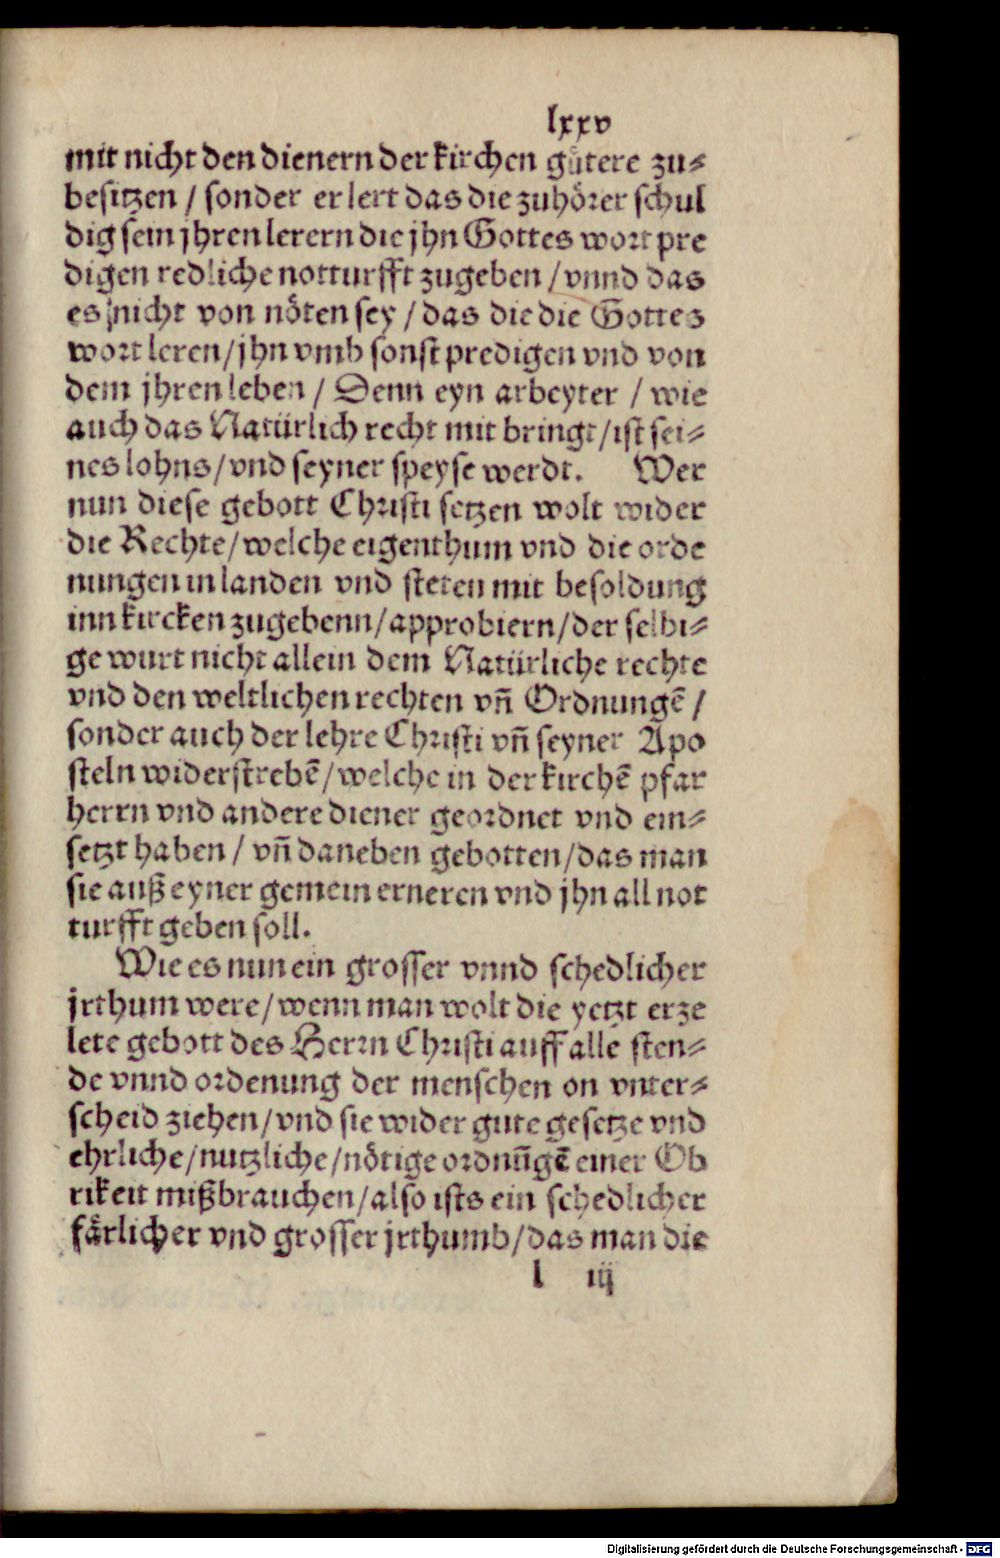 lxxv
mit nicht den dienern der kirchen gütere zu-
besitzen / sonder er lert das die zuhörer schul
dig sein jhren lerern die jhn Gottes wort pre
digen redliche notturfft zugeben / vnnd das
es nicht von nöten sey / das die die Gottes
wort leren / jhn vmb sonst predigen vnd von
dem jhren leben / Denn eyn arbeyter / wie
auch das Natürlich recht mit bringt / ist sei-
nes lohns / vnd seyner speyse werdt. Wer
nun diese gebott Christi setzen wolt wider
die Rechte / welche eigenthum vnd die orde
nungen in landen vnd steten mit besoldung
inn kircken zugebenn / approbiern / der selbi-
ge wurt nicht allein dem Natürliche rechte
vnd den weltlichen rechten vn̄ Ordnungē /
sonder auch der lehre Christi vn̄ seyner Apo
steln widerstrebē / welche in der kirchē pfar
herrn vnd andere diener geordnet vnd ein-
setzt haben / vn̄ daneben gebotten / das man
sie auß eyner gemein erneren vnd jhn all not
turfft geben soll.
Wie es nun ein grosser vnnd schedlicher
jrthum were / wenn man wolt die yetzt erze
lete gebott des Herrn Christi auff alle sten-
de vnnd ordenung der menschen on vnter-
scheid ziehen / vnd sie wider gute gesetze vnd
ehrliche / nutzliche / nötige ordnūgē einer Ob
rikeit mißbrauchen / also ists ein schedlicher
färlicher vnd grosser jrthumb / das man die
l iij
Digitalisierung gefördert durch die Deutsche Forschungsgemeinschaft - DFG